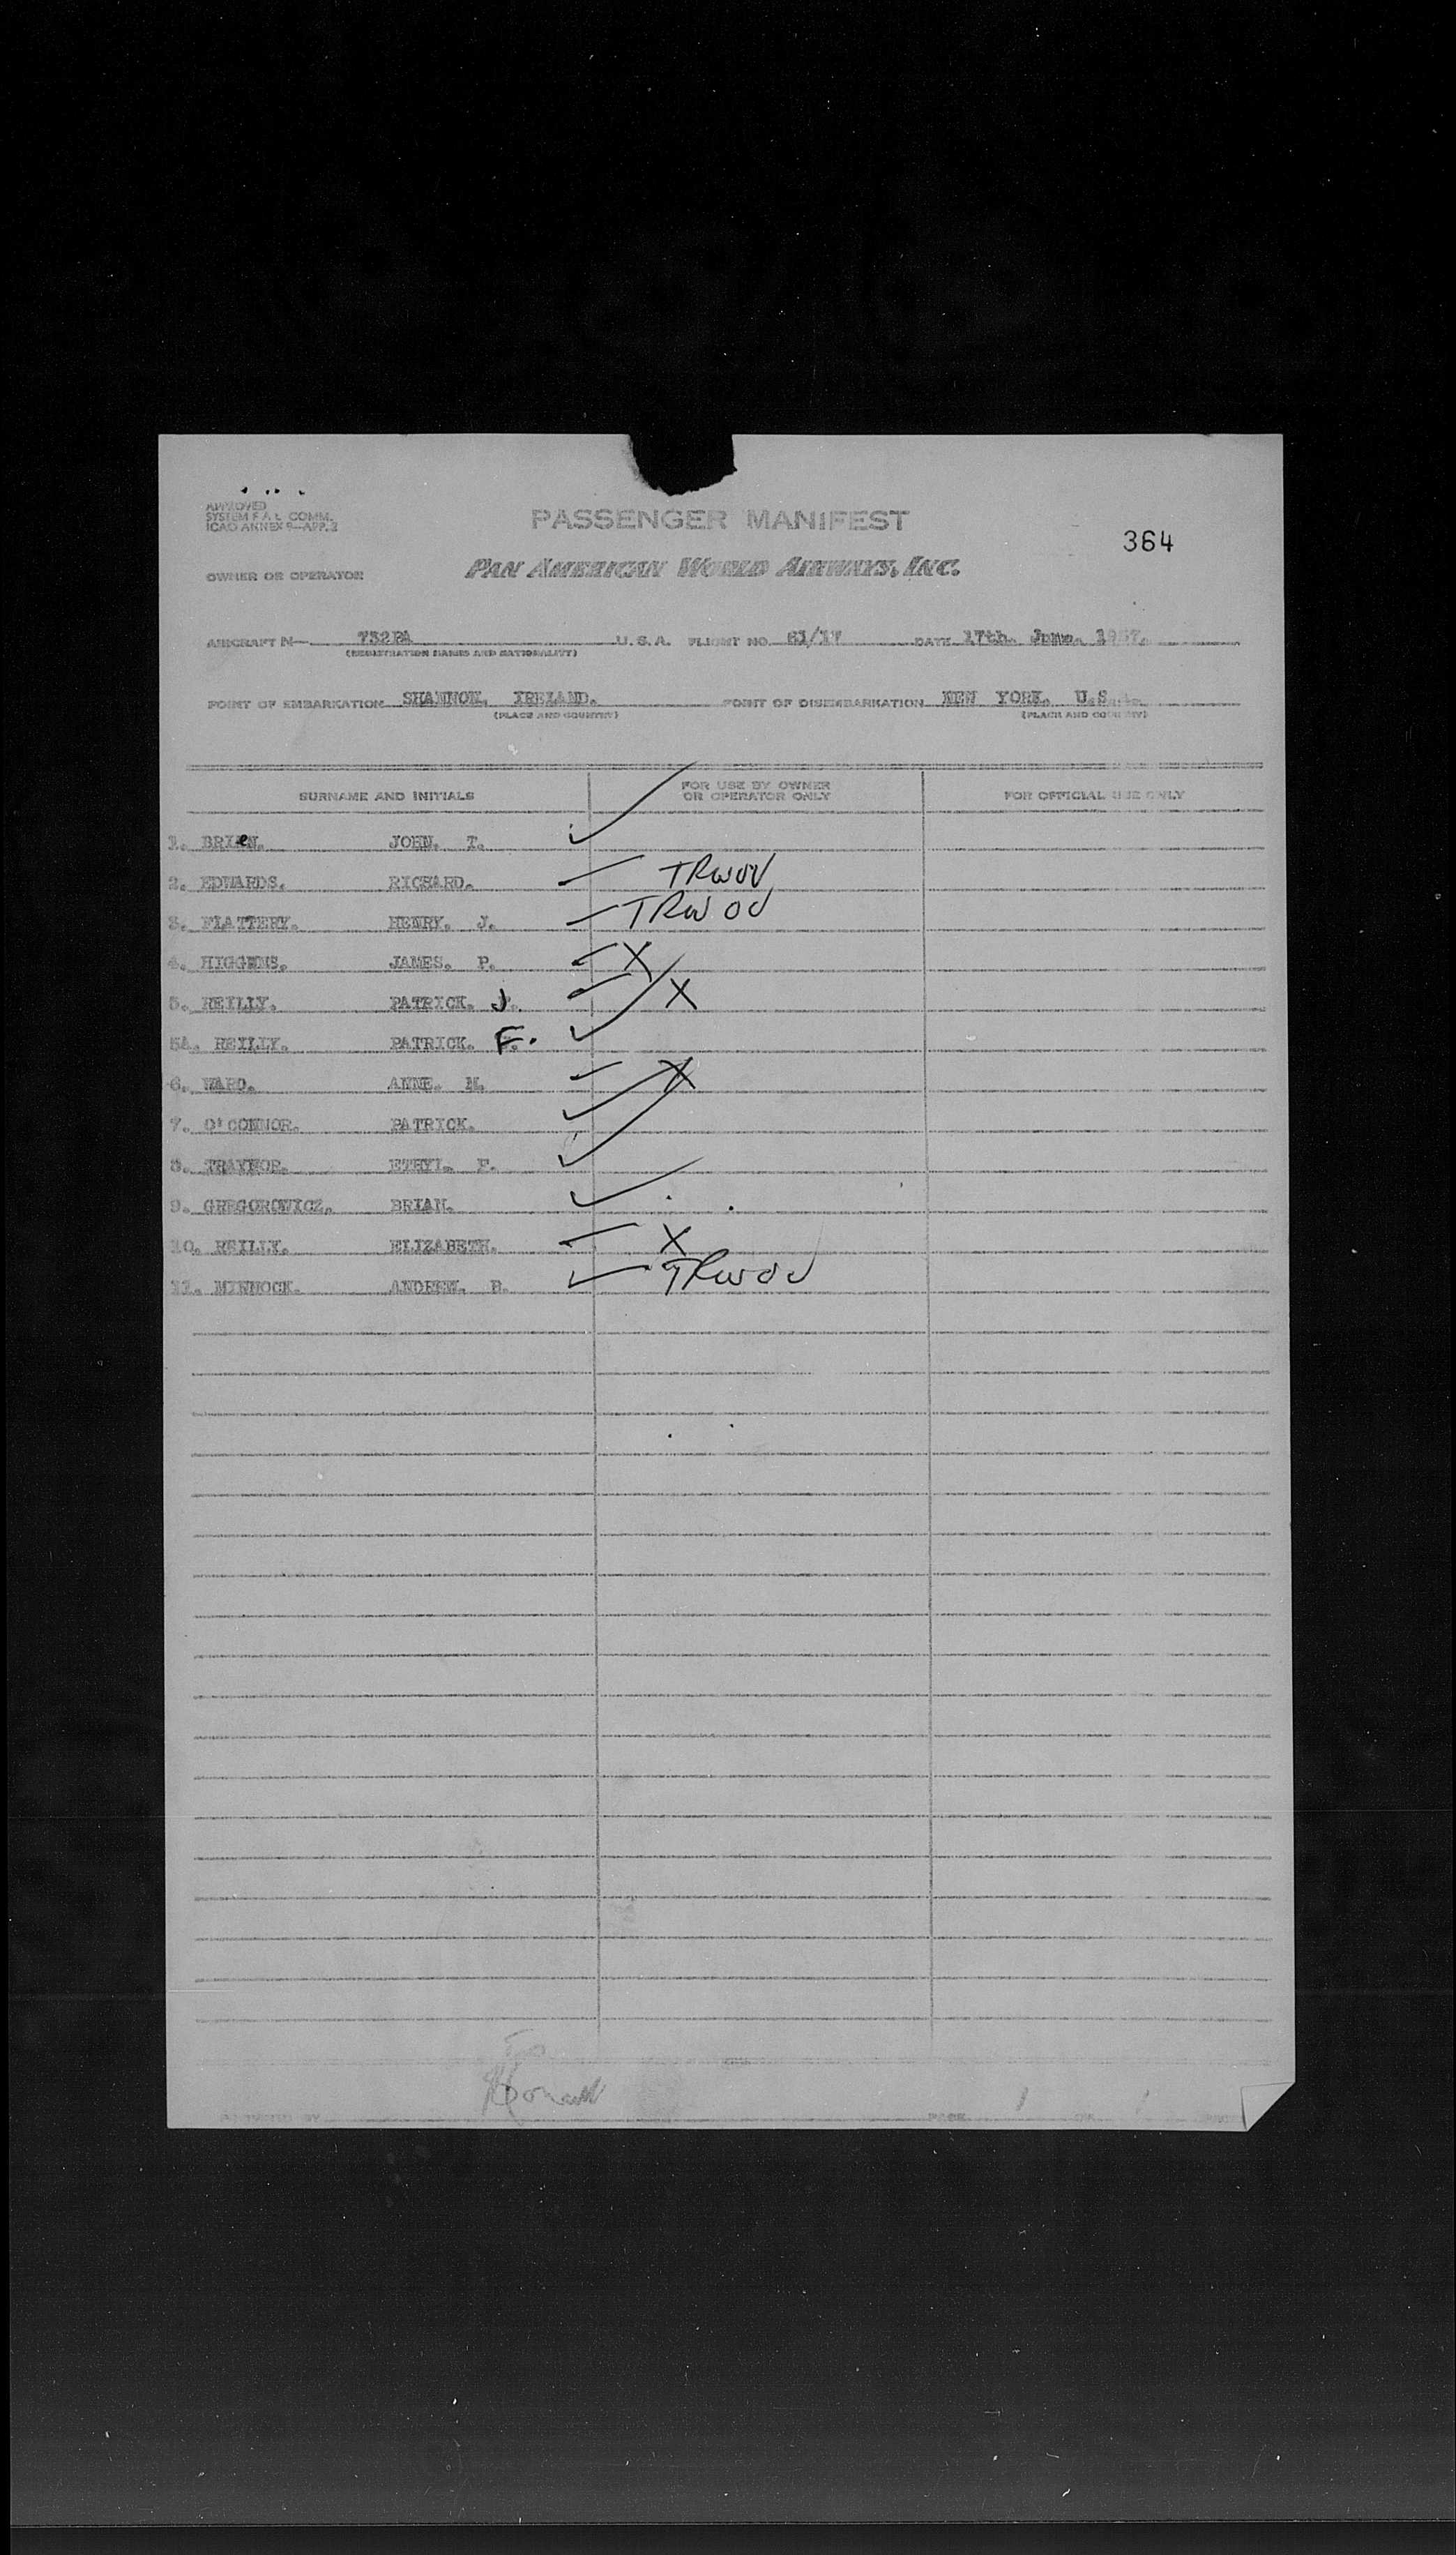 APPROVED
SYSTEM F. A. L. COMM.
ICAO ANNEX 9—APP. 2
PASSENGER MANIFEST
364
OWNER OR OPERATOR PAN AMERICAN WORLD AIRWAYS, INC.
AIRCRAFT N— 732PA U. S. A. FLIGHT NO. 61/17 DATE 17th. June. 1957.
(REGISTRATION MARKS AND NATIONALITY)
POINT OF EMBARKATION SHANNON. IRELAND. POINT OF DISEMBARKATION NEW YORK. U.S.A.
(PLACE AND COUNTRY) (PLACE AND COUNTRY)
SURNAME AND INITIALS FOR USE BY OWNER OR OPERATOR ONLY FOR OFFICIAL USE ONLY
1. BRIeN. JOHN. T. ✓
2. EDWARDS. RICHARD. TRWOV
3. FLATTERY. HENRY. J. TRWOV
4. HIGGENS. JAMES. P. X
5. REILLY. PATRICK. J. X
5A. REILLY. PATRICK. F. ✓
6. WARD. ANNE. M. X
7. O'CONNOR. PATRICK. ✓
8. TRAYNOR. ETHYL. F. ✓
9. GREGOROWICZ. BRIAN. ✓
10. REILLY. ELIZABETH. X
11. MINNOCK. ANDREW. B. ✓ TRWOV
PAGE 1 OF 1